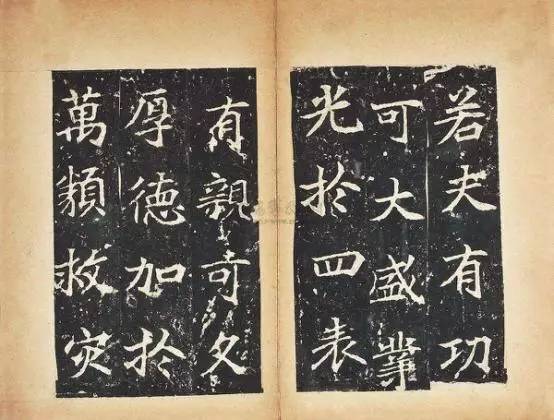 若夫有功
可大盛業
光於四表
有親可久
厚德加於
萬類救灾